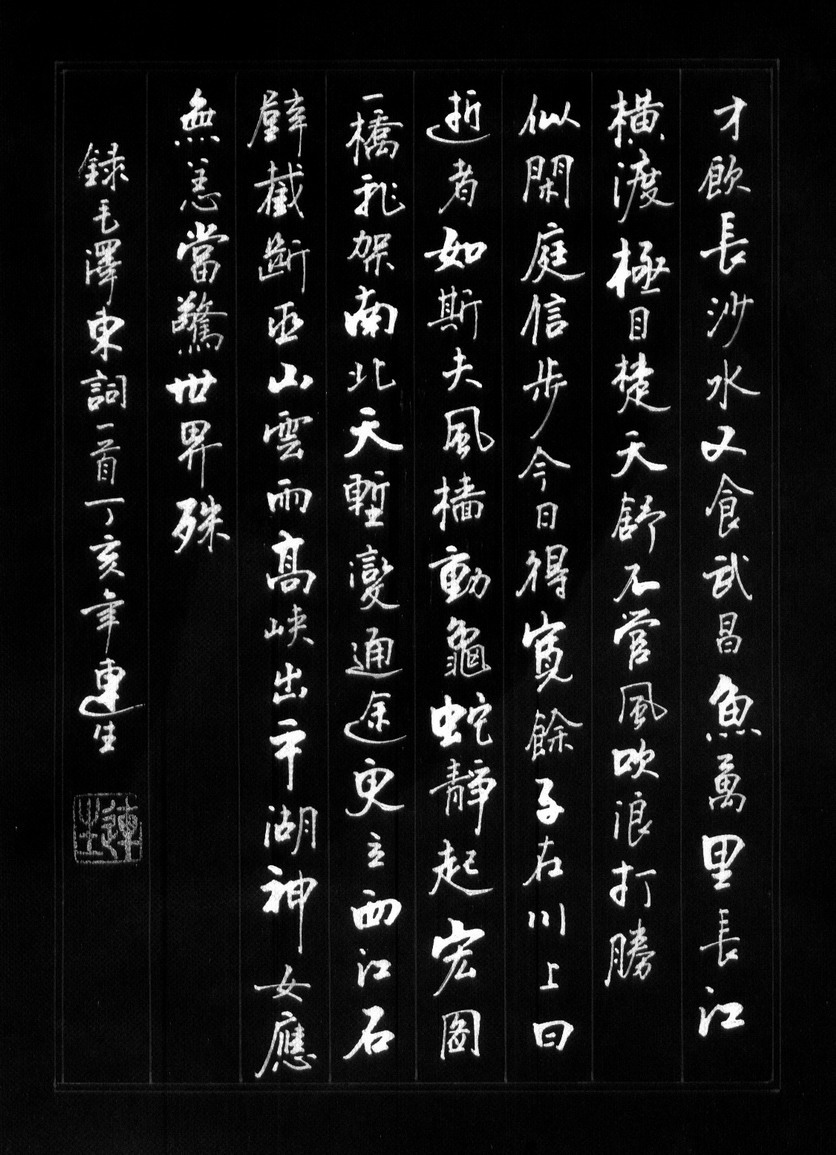 才飲長沙水又食武昌魚萬里長江
橫渡極目楚天舒不管風吹浪打勝
似閑庭信步今日得寬餘子在川上曰
逝者如斯夫風檣動龜蛇靜起宏圖
一橋飛架南北天塹變通途更立西江石
壁截斷巫山雲雨高峽出平湖神女應
無恙當驚世界殊
錄毛澤東詞一首丁亥年連生
連生